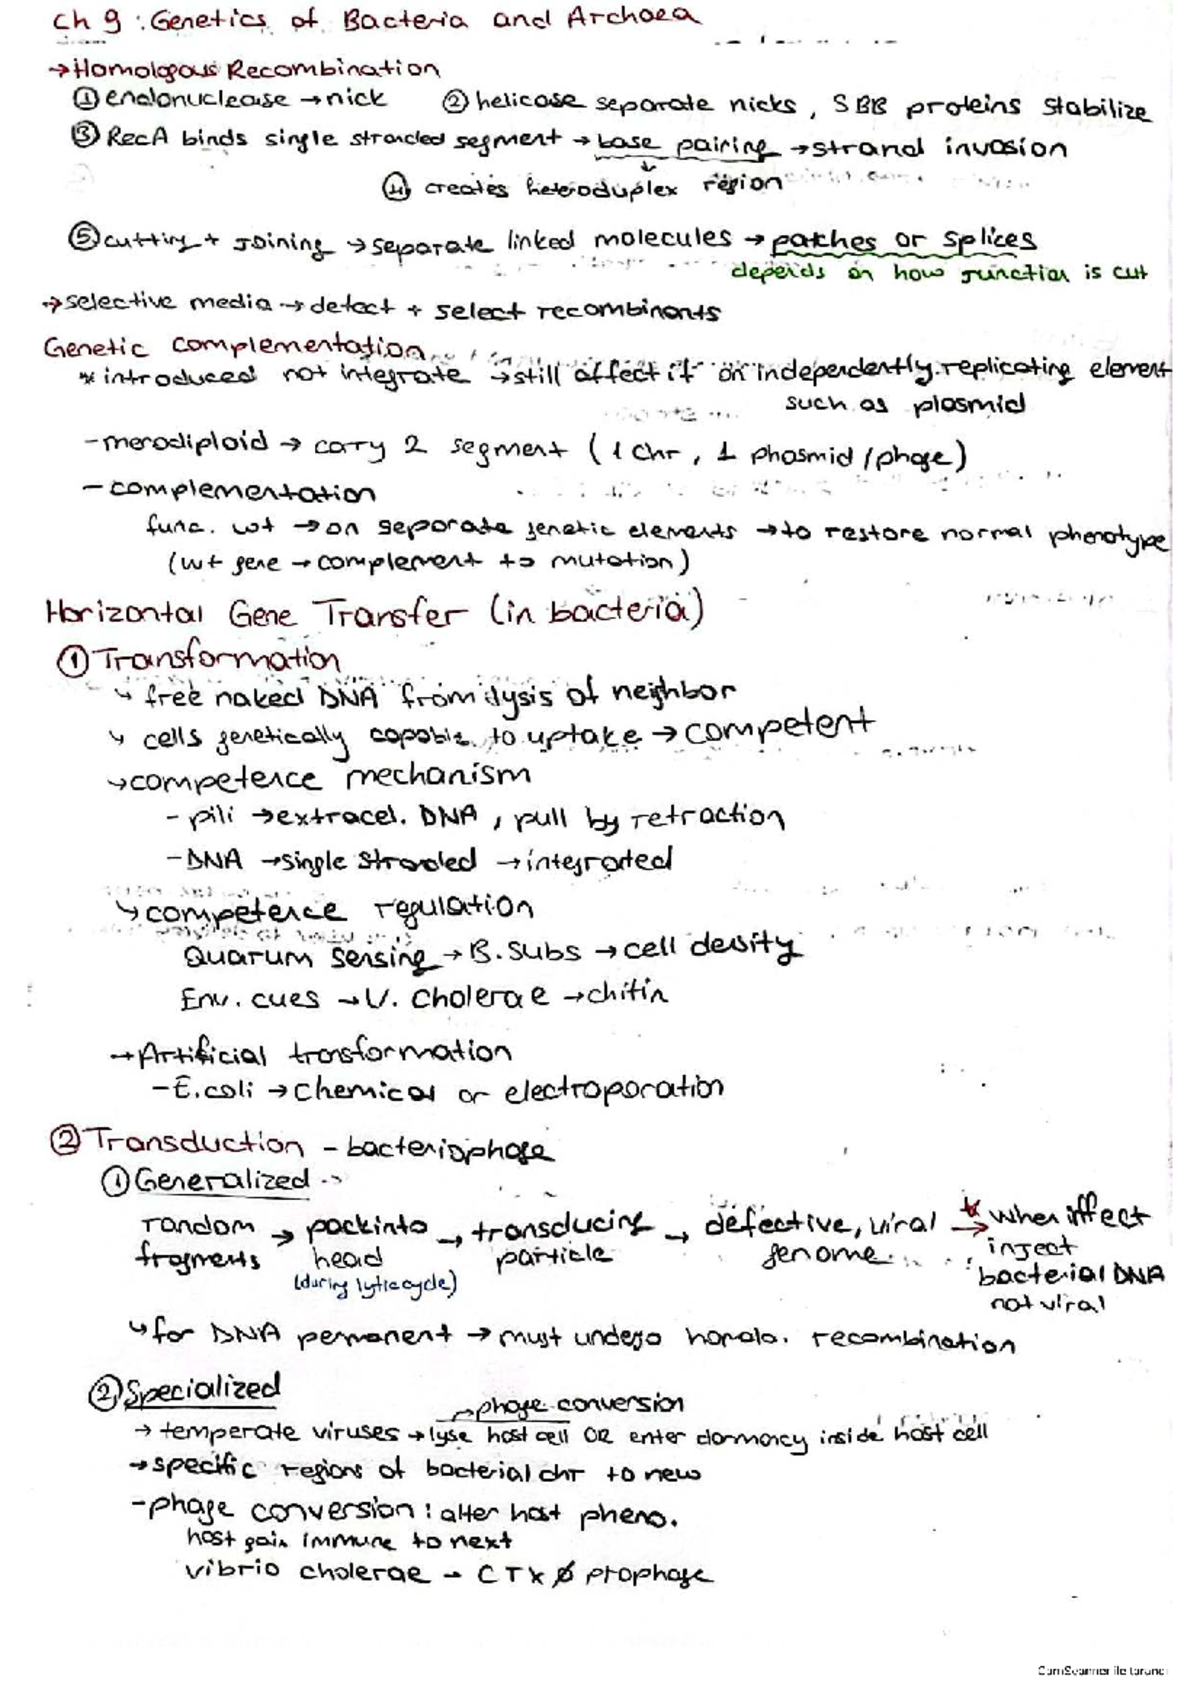 Ch 9 : Genetics of Bacteria and Archaea
→Homologous Recombination
① endonuclease → nick ② helicase separate nicks, SBB proteins stabilize
③ RecA binds single stranded segment → base pairing → strand invasion
④ creates heteroduplex region
⑤ cutting + joining → separate linked molecules → patches or splices
depends on how junction is cut
→ selective media → detect + select recombinants
Genetic complementation
* introduced not integrate → still affect if on independently replicating element
such as plasmid
- merodiploid → carry 2 segment (1 chr, 1 phasmid/phage)
- complementation
func. wt → on separate genetic elements → to restore normal phenotype
(wt gene → complement to mutation)
Horizontal Gene Transfer (in bacteria)
① Transformation
↳ free naked DNA from lysis of neighbor
↳ cells genetically capable to uptake → competent
↳ competence mechanism
- pili → extracel. DNA, pull by retraction
- DNA → single straded → integrated
↳ competence regulation
Quarum sensing → B. Subs → cell density
Env. cues → V. cholerae → chitin
→ Artificial transformation
- E.coli → chemical or electroporation
② Transduction - bacteriophage
① Generalized
random → pack into → transducing → defective, viral * → when iffect
fragments head particle genome. inject
(during lytic cycle) bacterial DNA
not viral
↳ for DNA permanent → must undego homolo. recombination
② Specialized
→ phage conversion
→ temperate viruses → lyse host cell OR enter dormancy inside host cell
→ specific regions of bacterial chr to new
- phage conversion : alter host pheno.
host gain immune to next
vibrio cholerae → CTXØ prophage
CamScanner ile tarandı